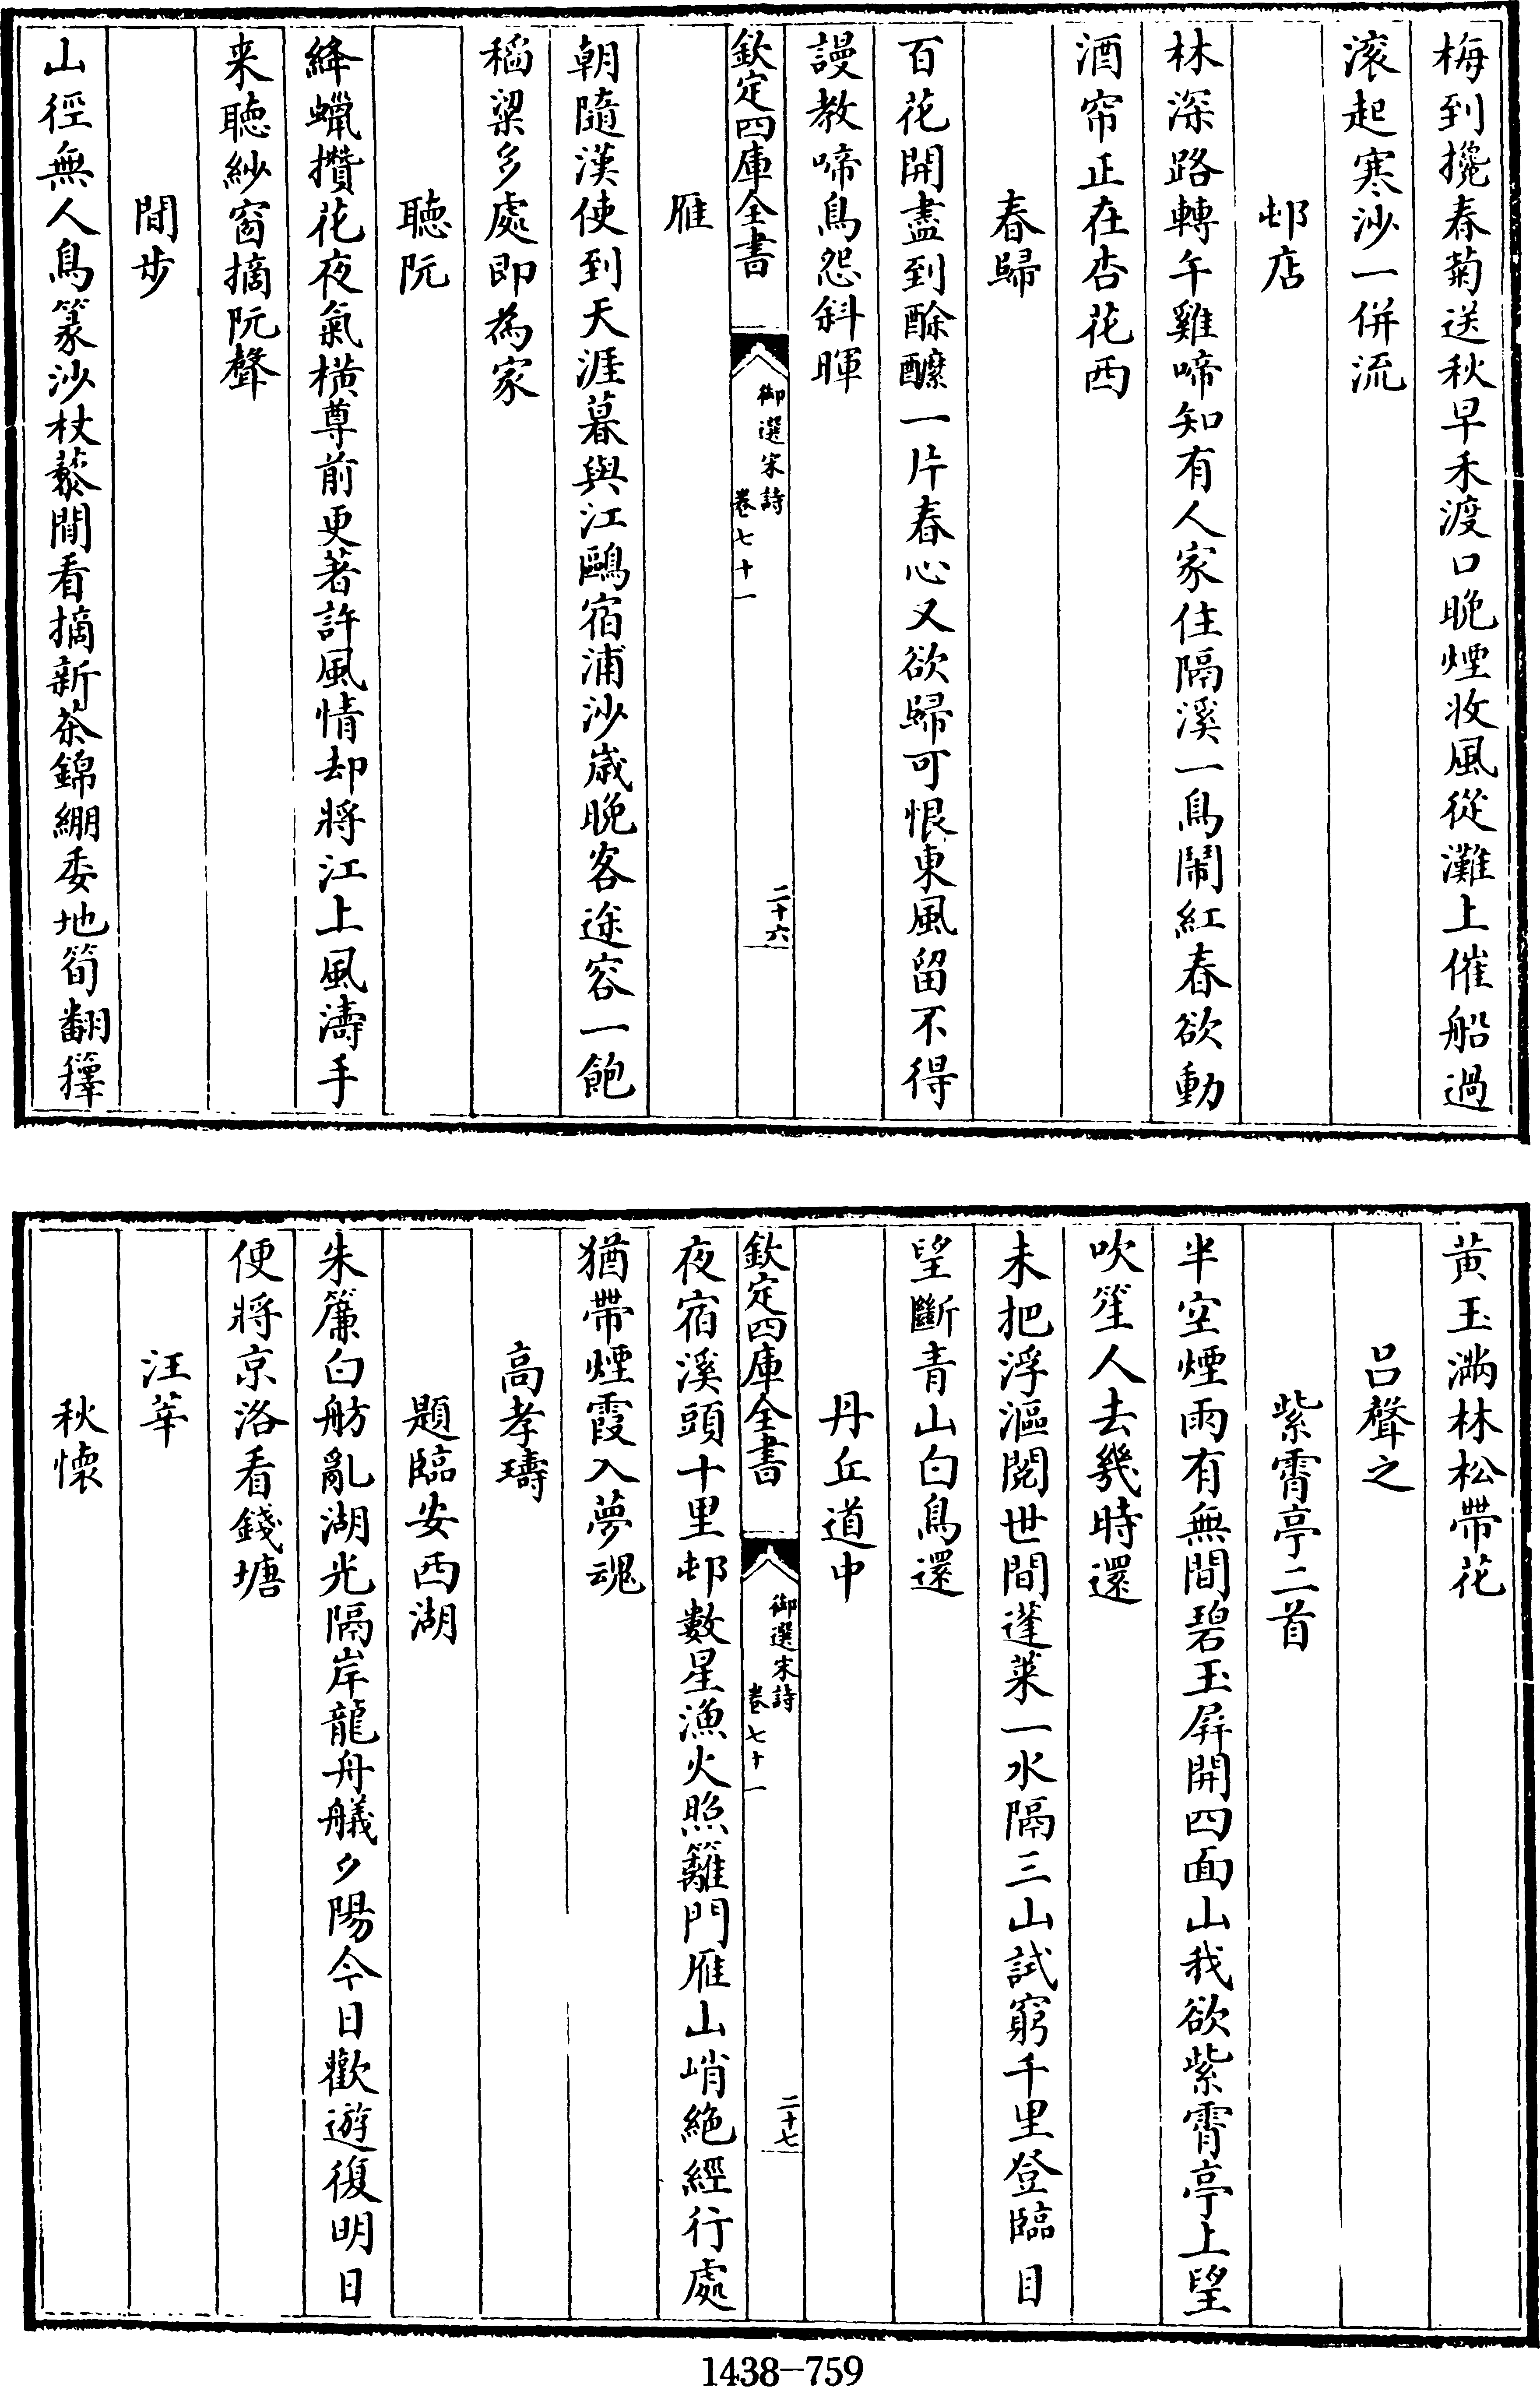 梅到攙春菊送秋早禾渡口晚煙收風從灘上催船過
滚起寒沙一併流
邨店
林深路轉午雞啼知有人家住隔溪一鳥鬧紅春欲動
酒帘正在杏花西
春歸
百花開盡到酴醿一片春心又欲歸可恨東風留不得
謾教啼鳥怨斜暉
欽定四庫全書
御選宋詩
卷七十一
二十六
雁
朝隨漢使到天涯暮與江鷗宿浦沙歲晚客途容一飽
稻粱多處即為家
聽阮
絳蠟攢花夜氣横尊前更著許風情却將江上風濤手
来聽紗窗摘阮聲
閒步
山徑無人鳥篆沙杖藜閒看摘新茶錦綳委地筍翻籜
黄玉满林松帶花
吕聲之
紫霄亭二首
半空煙雨有無間碧玉屏開四面山我欲紫霄亭上望
吹笙人去幾時還
未把浮漚閲世間蓬萊一水隔三山試窮千里登臨目
望斷青山白鳥還
丹丘道中
欽定四庫全書
御選宋詩
卷七十一
二十七
夜宿溪頭十里邨數星漁火照籬門雁山峭絶經行處
猶帶煙霞入夢魂
高孝璹
題臨安西湖
朱簾白舫亂湖光隔岸龍舟艤夕陽今日歡遊復明日
便將京洛看錢塘
汪莘
秋懷
1438-759